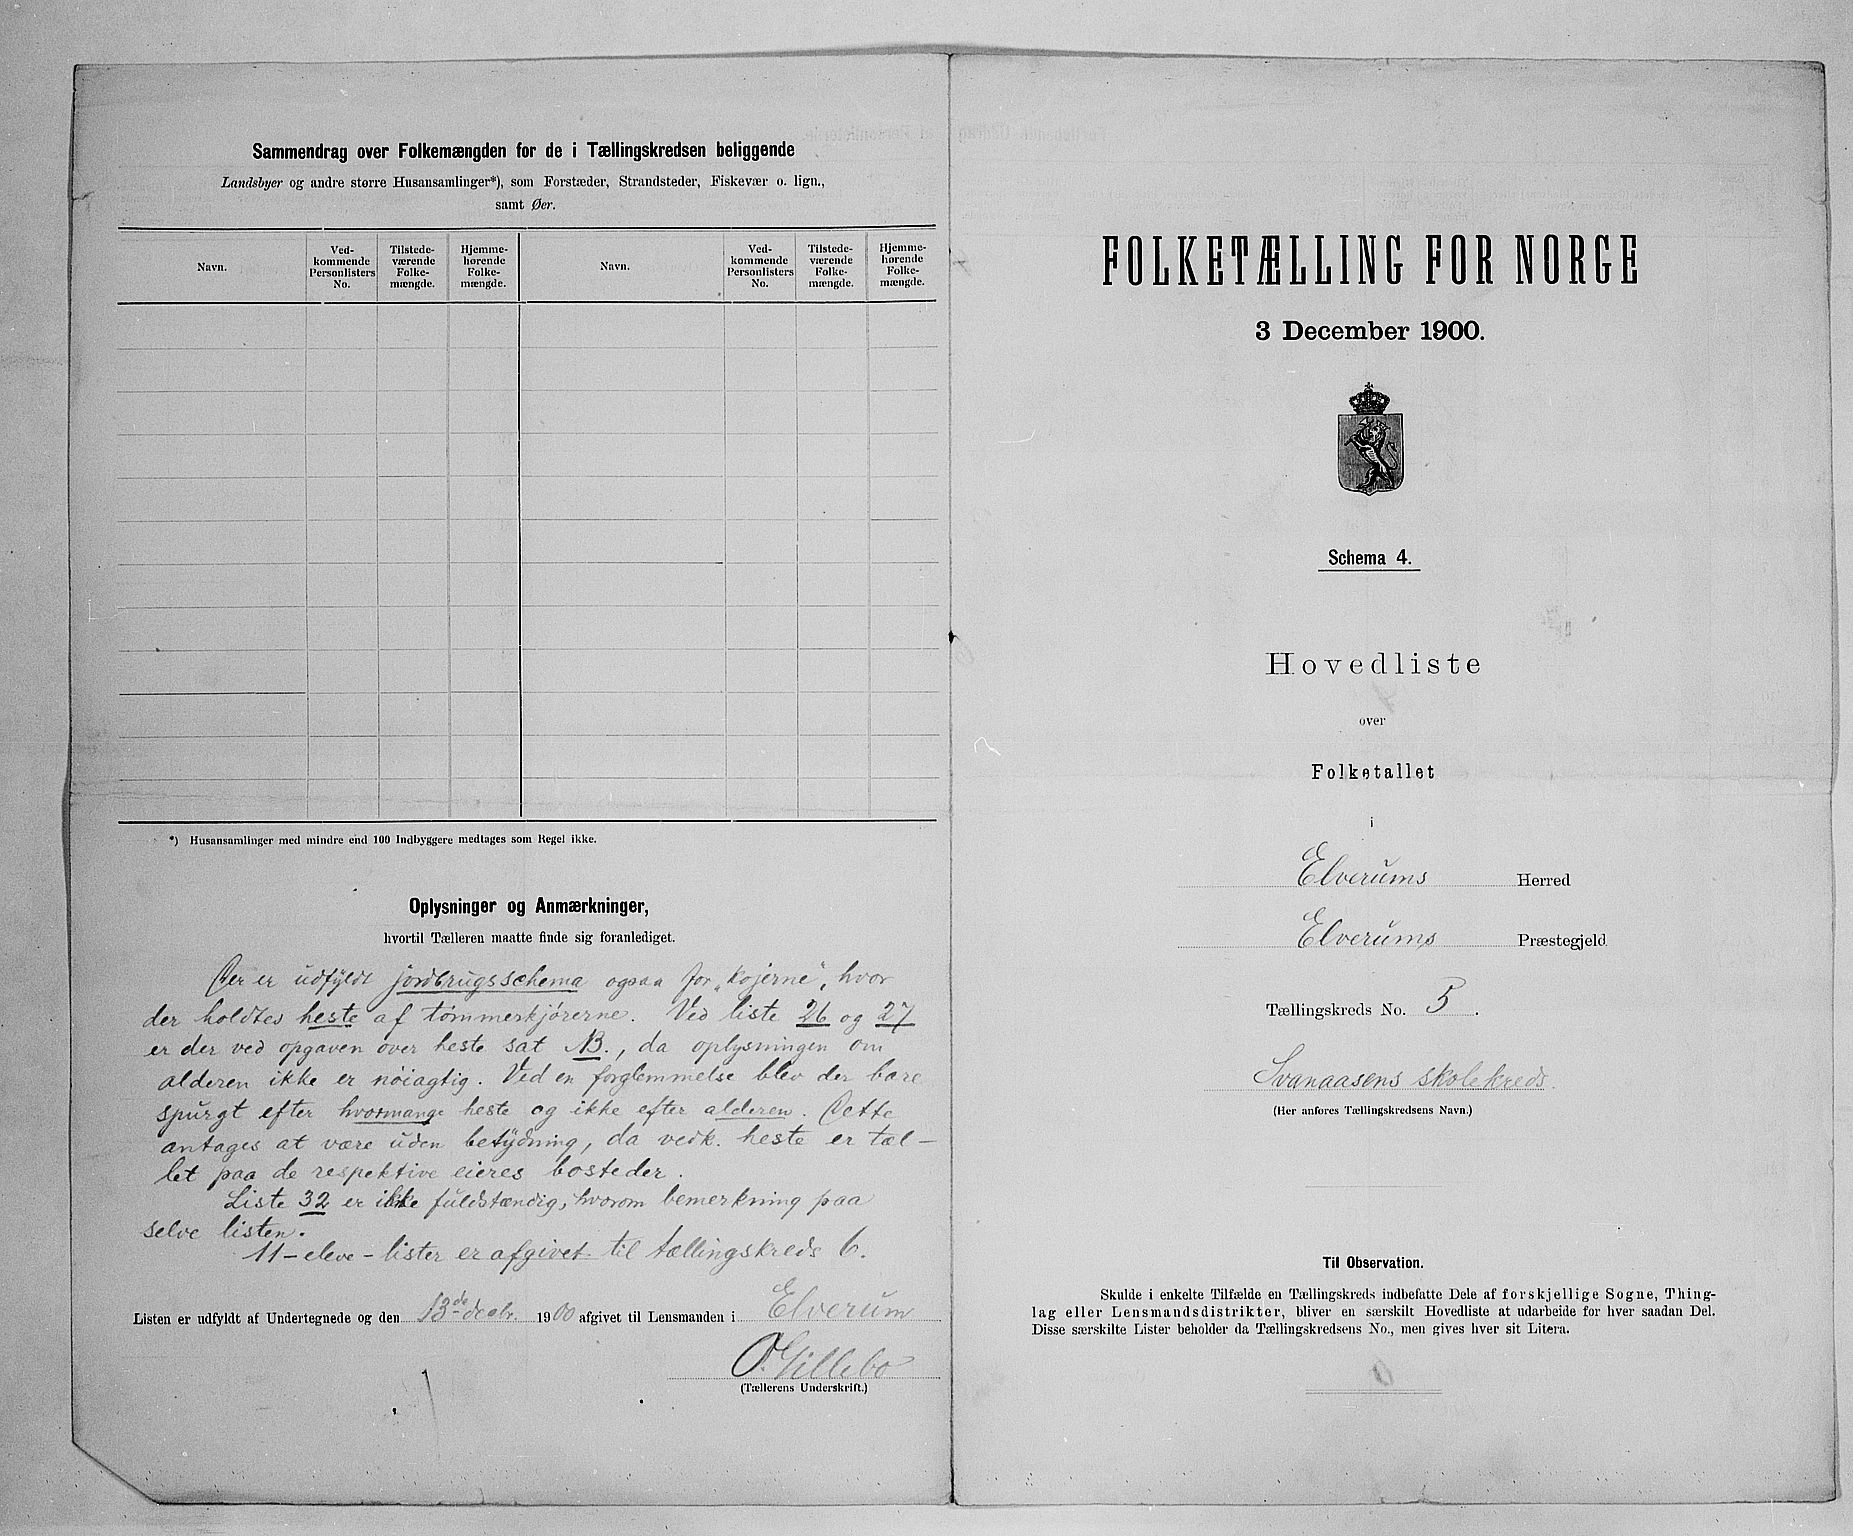 Sammendrag over Folkemængden for de i Tællingskredsen beliggende
Landsbyer og andre større Husansamlinger*), som Forstæder, Strandsteder, Fiskevær o. lign.,
samt Øer.
Navn.
Ved-
kommende
Personlisters
No.
Tilstede-
værende
Folke-
mængde.
Hjemme-
hørende
Folke-
mængde.
Navn.
Ved-
kommende
Personlisters
No.
Tilstede-
værende
Folke-
mængde.
Hjemme-
hørende
Folke-
mængde.
*) Husansamlinger med mindre end 100 Indbyggere medtages som Regel ikke.
Oplysninger og Anmærkninger,
hvortil Tælleren maatte finde sig foranlediget.
Der er udfyldt jordbrugsschema ogsaa for „kojerne“, hvor
der holdtes heste af tømmerkjørerne. Ved liste 26 og 27
er der ved opgaven over heste sat NB., da oplysningen om
alderen ikke er nøiagtig. Ved en forglemmelse blev der bare
spurgt efter hvormange heste og ikke efter alderen. Dette
antages at være uden betydning, da vedk. heste er tæl-
let paa de respektive eieres bosteder.
Liste 32 er ikke fuldstændig, hvorom bemerkning paa
selve listen.
11 - eleve - lister er afgivet til tællingskreds 6.
Listen er udfyldt af Undertegnede og den 13de decbr. 1900 afgivet til Lensmanden i Elverum
O. Gillebo
(Tællerens Underskrift.)
FOLKETÆLLING FOR NORGE
3 December 1900.
Schema 4.
Hovedliste
over
Folketallet
i
Elverums Herred
Elverums Præstegjeld
Tællingskreds No. 5.
Svanaasens skolekreds.
(Her anføres Tællingskredsens Navn.)
Til Observation.
Skulde i enkelte Tilfælde en Tællingskreds indbefatte Dele af forskjellige Sogne, Thing-
lag eller Lensmandsdistrikter, bliver en særskilt Hovedliste at udarbeide for hver saadan Del.
Disse særskilte Lister beholder da Tællingskredsens No., men gives hver sit Litera.